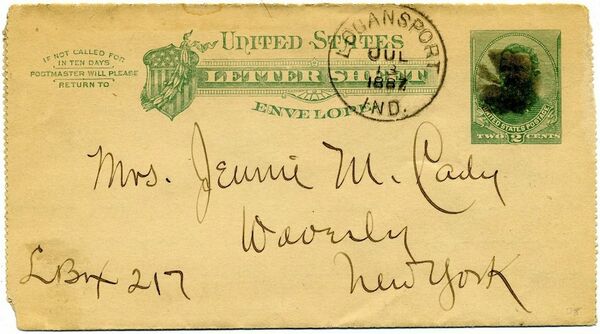 IF NOT CALLED FOR
IN TEN DAYS
POSTMASTER WILL PLEASE
RETURN TO
UNITED STATES
LETTER SHEET
ENVELOPE
LOGANSPORT
JUL
1887
IND.
UNITED STATES POSTAGE
TWO 2 CENTS
Mrs. Jennie M. Cady
Waverly
New York
L Box 217